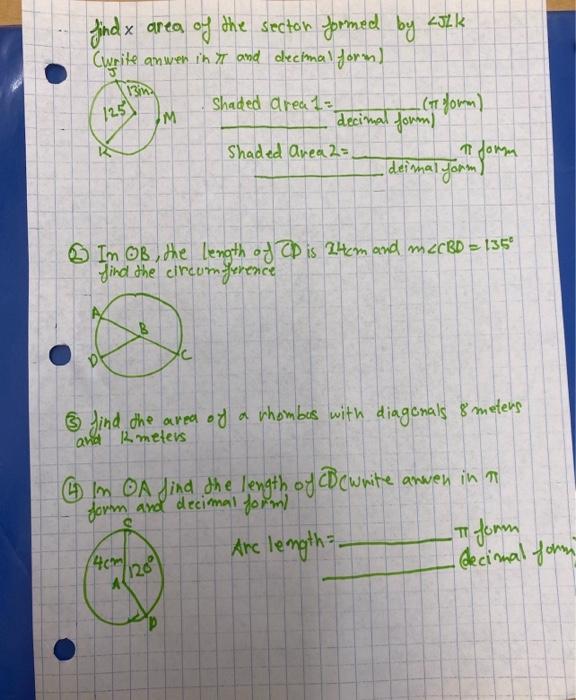 find x area of the sector formed by ∠JLK
(write anwer in π and decimal form)
J
13in.
125°
M
K
Shaded area 1 = ________ (π form)
________ decimal form)
Shaded Area 2 = ________ π form
________ deimal form)
② In ⊙B, the length of CD is 24cm and m∠CBD = 135°
find the circumference
A
B
D
C
③ find the area of a rhombus with diagonals 8 meters
and 12 meters
④ In ⊙A find the length of CD (write anwer in π
form and decimal form)
C
4cm
120°
A
D
Arc length = ________ π form
________ decimal form)